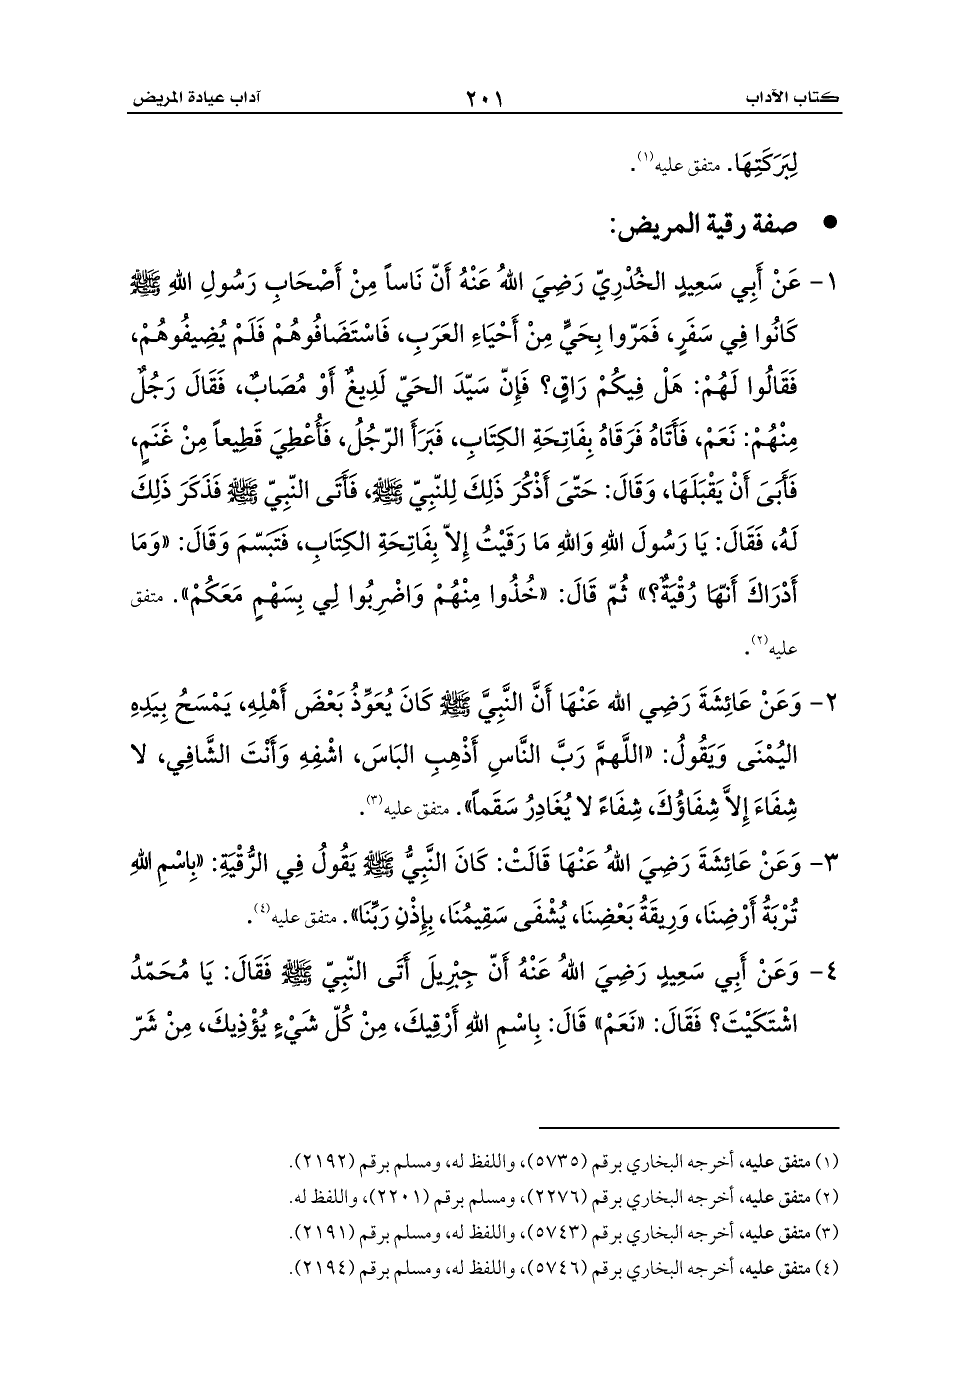 كتاب الآداب ٢٠١ آداب عيادة المريض
لِبَرَكَتِهَا. متفق عليه(١).
● صفة رقية المريض:
١- عَنْ أَبِي سَعِيدٍ الخُدْرِيّ رَضِيَ اللهُ عَنْهُ أَنّ نَاساً مِنْ أَصْحَابِ رَسُولِ اللهِ ﷺ
كَانُوا فِي سَفَرٍ، فَمَرّوا بِحَيٍّ مِنْ أَحْيَاءِ العَرَبِ، فَاسْتَضَافُوهُمْ فَلَمْ يُضِيفُوهُمْ،
فَقَالُوا لَهُمْ: هَلْ فِيكُمْ رَاقٍ؟ فَإِنّ سَيّدَ الحَيّ لَدِيغٌ أَوْ مُصَابٌ، فَقَالَ رَجُلٌ
مِنْهُمْ: نَعَمْ، فَأَتَاهُ فَرَقَاهُ بِفَاتِحَةِ الكِتَابِ، فَبَرَأَ الرّجُلُ، فَأُعْطِيَ قَطِيعاً مِنْ غَنَمٍ،
فَأَبَى أَنْ يَقْبَلَهَا، وَقَالَ: حَتّىَ أَذْكُرَ ذَلِكَ لِلنّبِيّ ﷺ، فَأَتَى النّبِيّ ﷺ فَذَكَرَ ذَلِكَ
لَهُ، فَقَالَ: يَا رَسُولَ اللهِ وَاللهِ مَا رَقَيْتُ إِلاّ بِفَاتِحَةِ الكِتَابِ، فَتَبَسّمَ وَقَالَ: «وَمَا
أَدْرَاكَ أَنّهَا رُقْيَةٌ؟» ثُمّ قَالَ: «خُذُوا مِنْهُمْ وَاضْرِبُوا لِي بِسَهْمٍ مَعَكُمْ». متفق
عليه(٢).
٢- وَعَنْ عَائِشَةَ رَضِي الله عَنْهَا أَنَّ النَّبِيَّ ﷺ كَانَ يُعَوِّذُ بَعْضَ أَهْلِهِ، يَمْسَحُ بِيَدِهِ
اليُمْنَى وَيَقُولُ: «اللَّهمَّ رَبَّ النَّاسِ أَذْهِبِ البَاسَ، اشْفِهِ وَأَنْتَ الشَّافِي، لا
شِفَاءَ إِلاَّ شِفَاؤُكَ، شِفَاءً لا يُغَادِرُ سَقَماً». متفق عليه(٣).
٣- وَعَنْ عَائِشَةَ رَضِيَ اللهُ عَنْهَا قَالَتْ: كَانَ النَّبِيُّ ﷺ يَقُولُ فِي الرُّقْيَةِ: «بِاسْمِ اللهِ
تُرْبَةُ أَرْضِنَا، وَرِيقَةُ بَعْضِنَا، يُشْفَى سَقِيمُنَا، بِإِذْنِ رَبِّنَا». متفق عليه(٤).
٤- وَعَنْ أَبِي سَعِيدٍ رَضِيَ اللهُ عَنْهُ أَنّ جِبْرِيلَ أَتَى النّبِيّ ﷺ فَقَالَ: يَا مُحَمّدُ
اشْتَكَيْتَ؟ فَقَالَ: «نَعَمْ» قَالَ: بِاسْمِ اللهِ أَرْقِيكَ، مِنْ كُلّ شَيْءٍ يُؤْذِيكَ، مِنْ شَرّ
(١) متفق عليه، أخرجه البخاري برقم (٥٧٣٥)، واللفظ له، ومسلم برقم (٢١٩٢).
(٢) متفق عليه، أخرجه البخاري برقم (٢٢٧٦)، ومسلم برقم (٢٢٠١)، واللفظ له.
(٣) متفق عليه، أخرجه البخاري برقم (٥٧٤٣)، واللفظ له، ومسلم برقم (٢١٩١).
(٤) متفق عليه، أخرجه البخاري برقم (٥٧٤٦)، واللفظ له، ومسلم برقم (٢١٩٤).